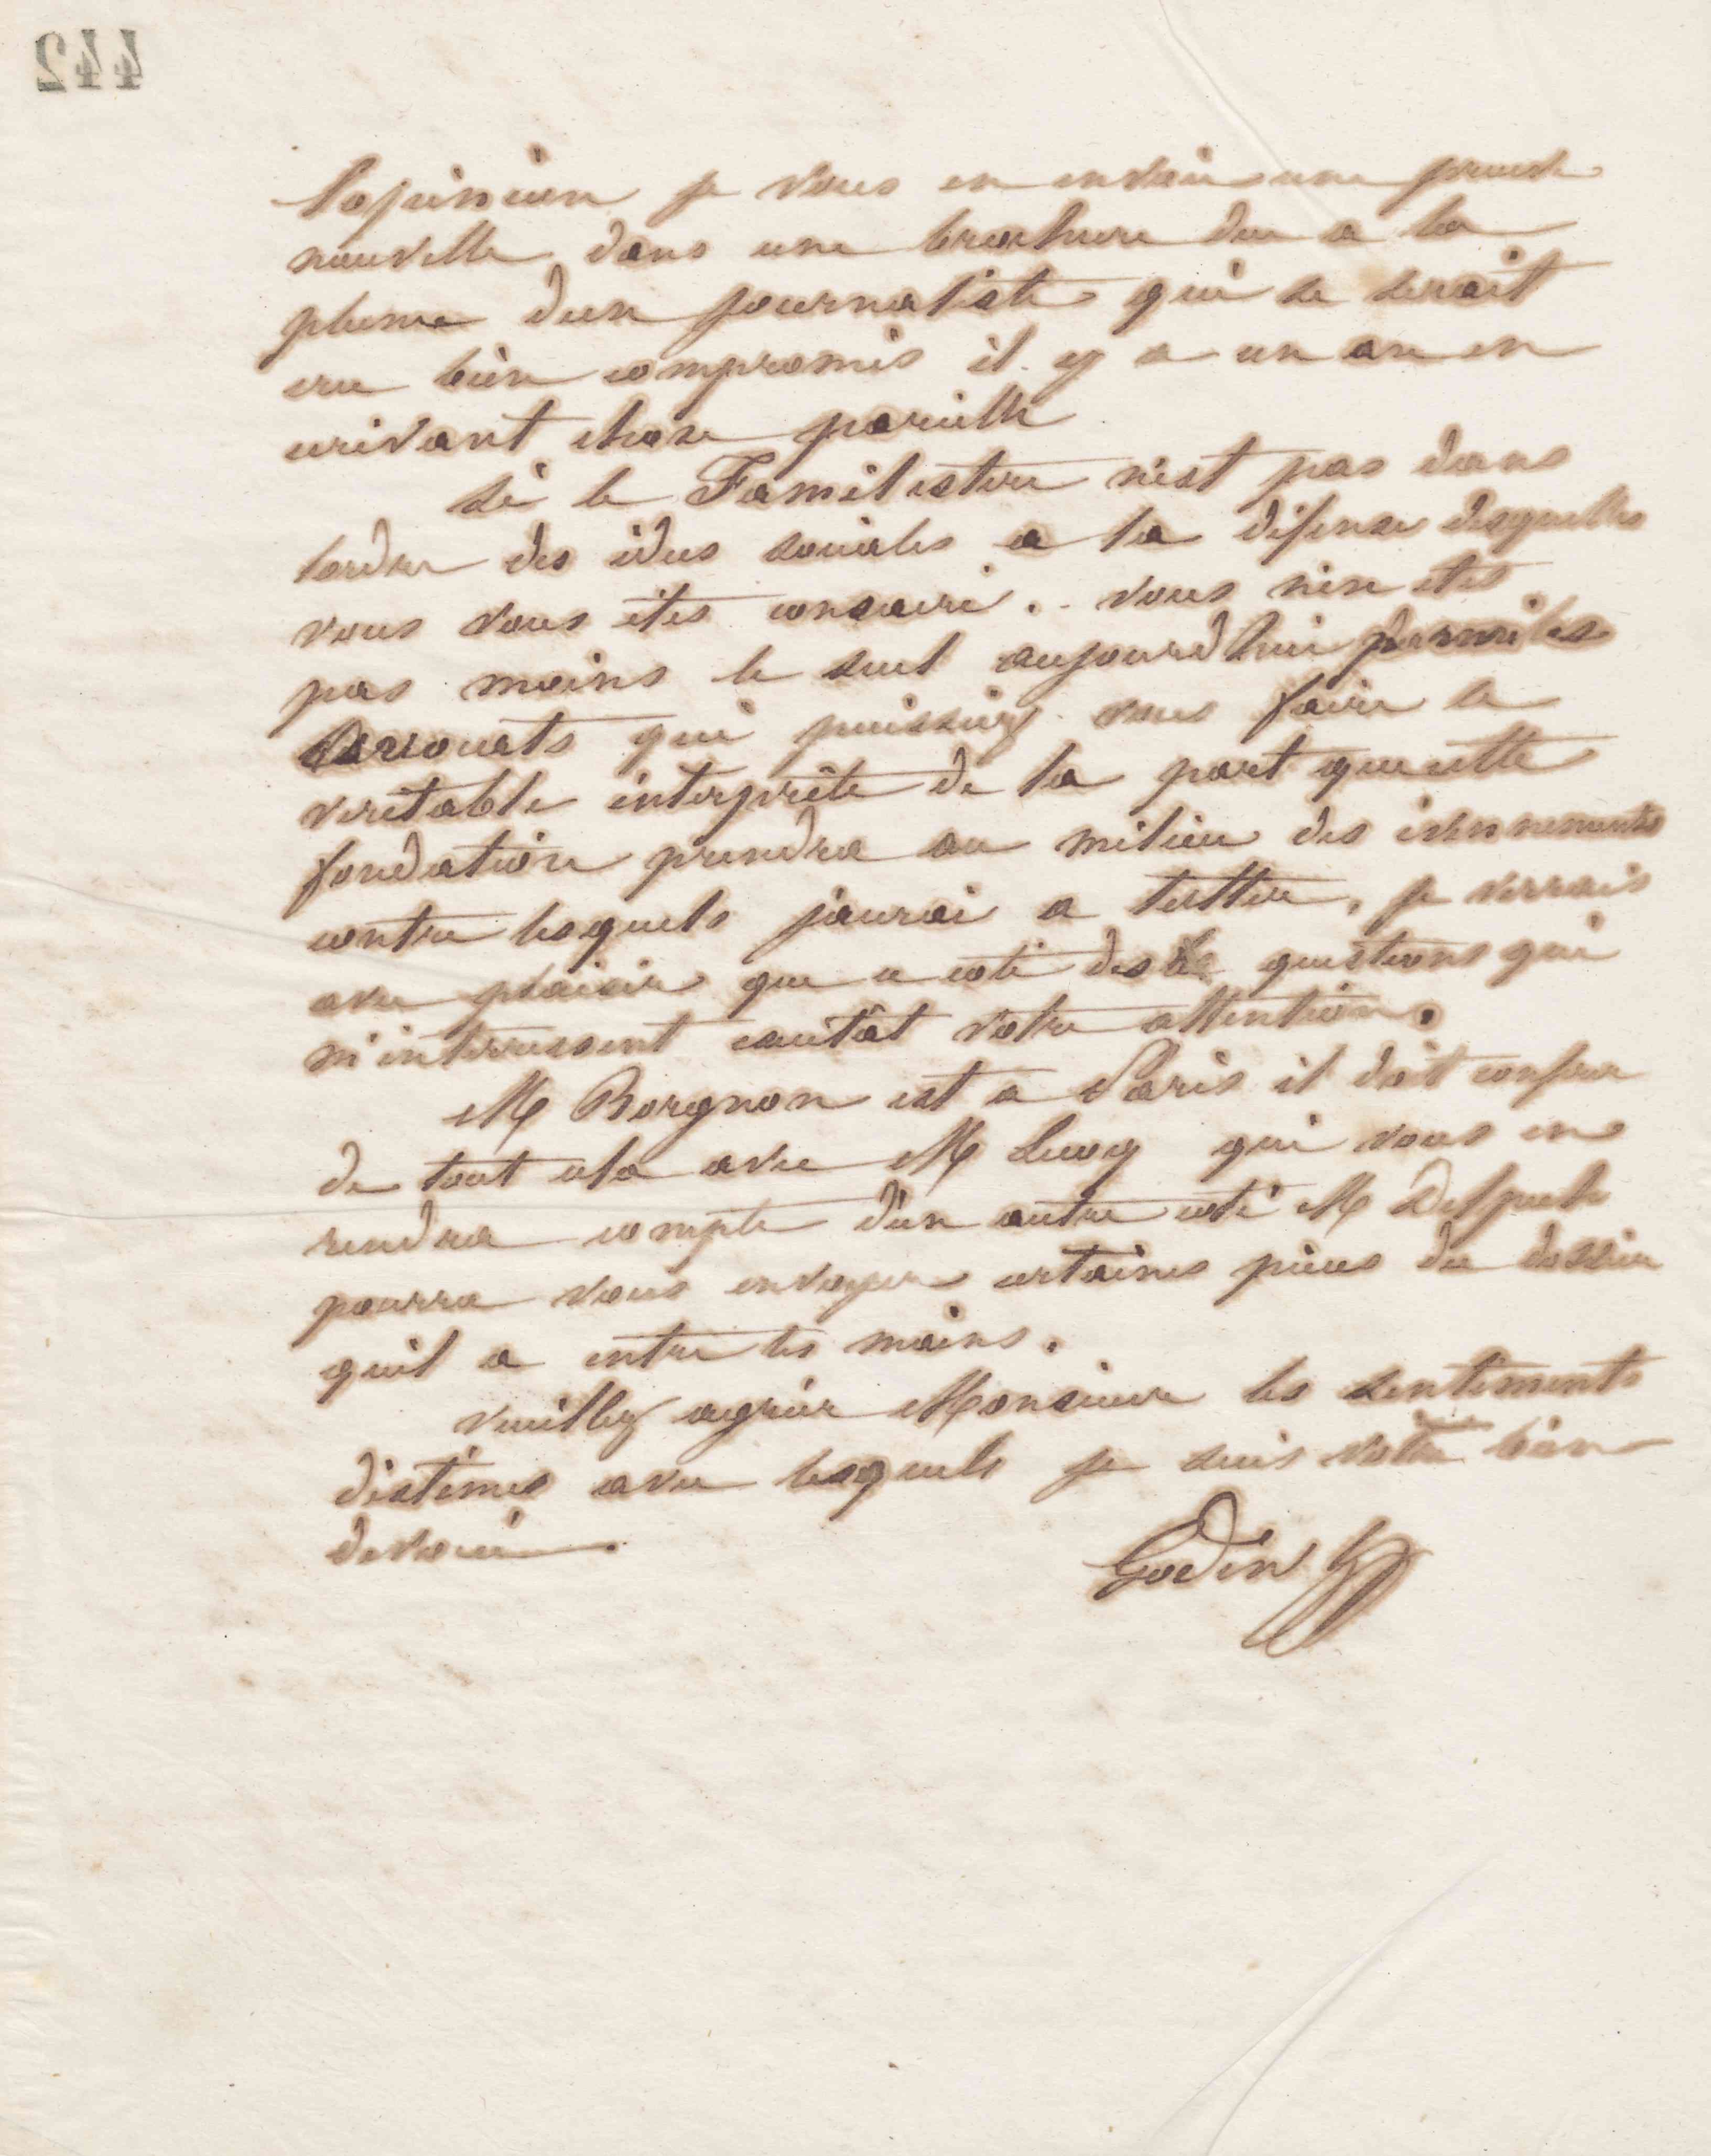 442
lopinion je vous en envoie une preuve
nouvelle dans une brochure due a la
plume dun journaliste qui se serait
cru bien compromis il y a un an en
ecrivant chose pareille
si le Familistere n'est pas dans
lordre des idees sociales a la défense desquelles
vous vous êtes consacré.. vous nen etes
pas moins le seul aujourdhui parmi les
avocats qui puissiez vous faire le
veritable interprète de la part que cette
fondation prendra au milieu des évennements
contre lesquels jaurai a lutter, je verrais
avec plaisir que a coté des questions qui
m'interressent
votre attention.
M Borgnon est a Paris il doit conferer
de tout cela avec M Lecoq qui vous en
rendra compte d'un autre coté M Delpech
pourra vous envoyer certaines pièces du dossier
quil a entre les mains.
veuillez agréer Monsieur les sentiments
distinés avec lesquels je suis votre bien
devoué.
Godin